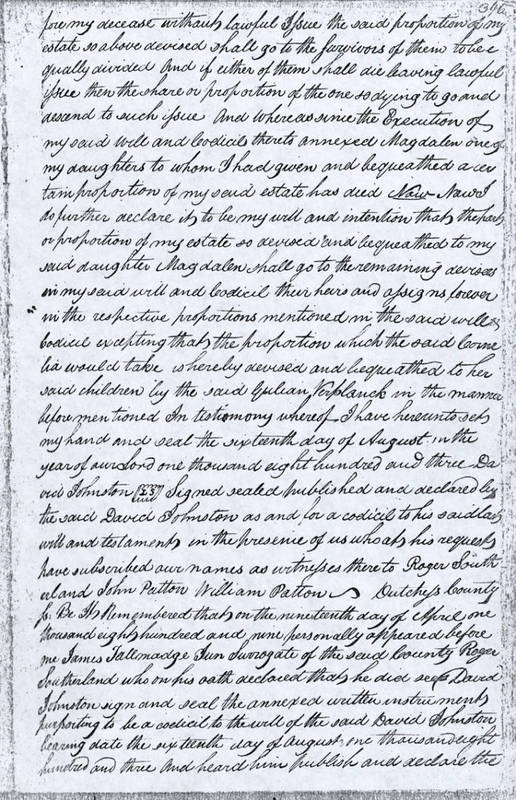 396
fore my decease without lawful Issue the said proportion of my
estate so above devised shall go to the survivors of them to be e
qually divided And if either of them shall die leaving lawful
issue then the share or proportion of the one so dying to go and
descend to such issue And whereas since the Execution of
my said will and Codicil thereto annexed Magdalen one of
my daughters to whom I had given and bequeathed a cer
tain proportion of my said estate has died Now Now I
do further declare it to be my will and intention that the part
or proportion of my estate so devised and bequeathed to my
said daughter Magdalen shall go to the remaining devisees
in my said will and Codicil their heirs and assigns forever
in the respective proportions mentioned in the said will &
Codicil excepting that the proportion which the said Corne
lia would take is hereby devised and bequeathed to her
said children by the said Gulian Verplanck in the manner
before mentioned In testimony whereof I have hereunto set
my hand and seal the sixteenth day of August in the
year of our Lord one thousand eight hundred and three Da
vid Johnston Signed sealed published and declared by
the said David Johnston as and for a codicil to his said last
will and testament in the presence of us who at his request
have subscribed our names as witnesses thereto Roger South
erland John Patton William Patton Dutchess County
Be It Remembered that on the nineteenth day of April one
thousand eight hundred and nine personally appeared before
me James Tallmadge Jun Surrogate of the said County Roger
Southerland who on his oath declared that he did see David
Johnston sign and seal the annexed written instrument
purporting to be a codicil to the will of the said David Johnston
bearing date the sixteenth day of August one thousand eight
hundred and three And heard him publish and declare the